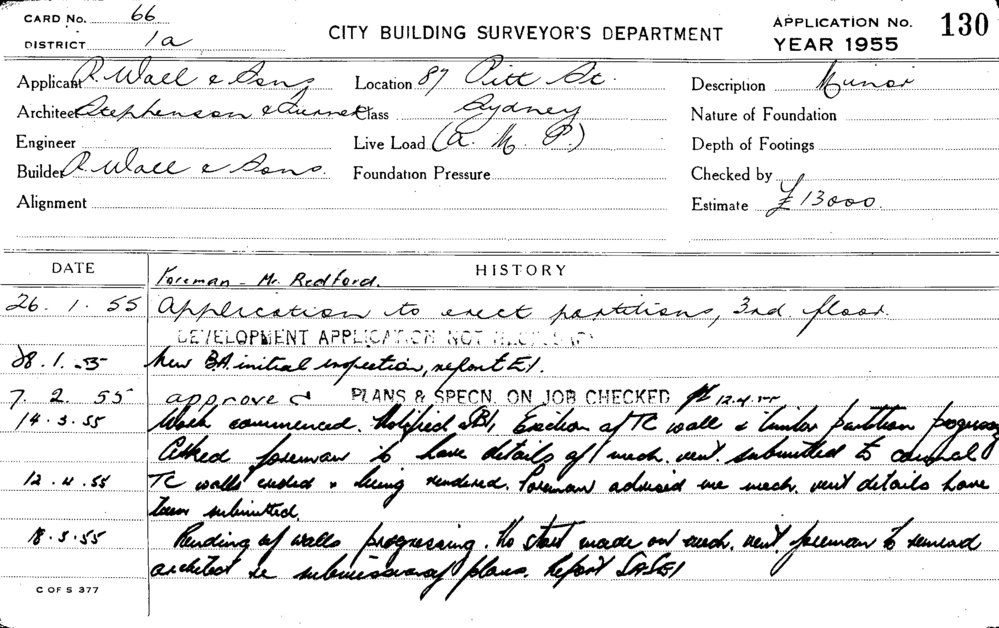 CARD No. 66
DISTRICT 1a
CITY BUILDING SURVEYOR'S DEPARTMENT
APPLICATION No. 130
YEAR 1955
Applicant R. Wall & Sons Location 87 Pitt St. Description Minor
Architect Stephenson & Turner Class Sydney Nature of Foundation
Engineer Live Load (A. M. P.) Depth of Footings
Builder R. Wall & Sons. Foundation Pressure Checked by
Alignment Estimate £13000.
DATE HISTORY
Foreman - Mr. Redford.
26. 1. 55 Application to erect partitions, 3rd. floor.
DEVELOPMENT APPLICATION NOT NECESSARY
28.1.55 New B.A. initial inspection, report E1.
7. 2. 55 approved PLANS & SPECN. ON JOB CHECKED 12.4.55
14.3.55 Work commenced. Notified Erection of TC wall & timber partition progressing
Asked foreman to have details of mech. vent. submitted to council
12.4.55 TC walls ended & being rendered. Foreman advised me mech. vent details have
been submitted.
18.5.55 Rending of walls progressing. No start made on mech. vent. foreman to remind
architect re submission of plans. Report
C OF S 377